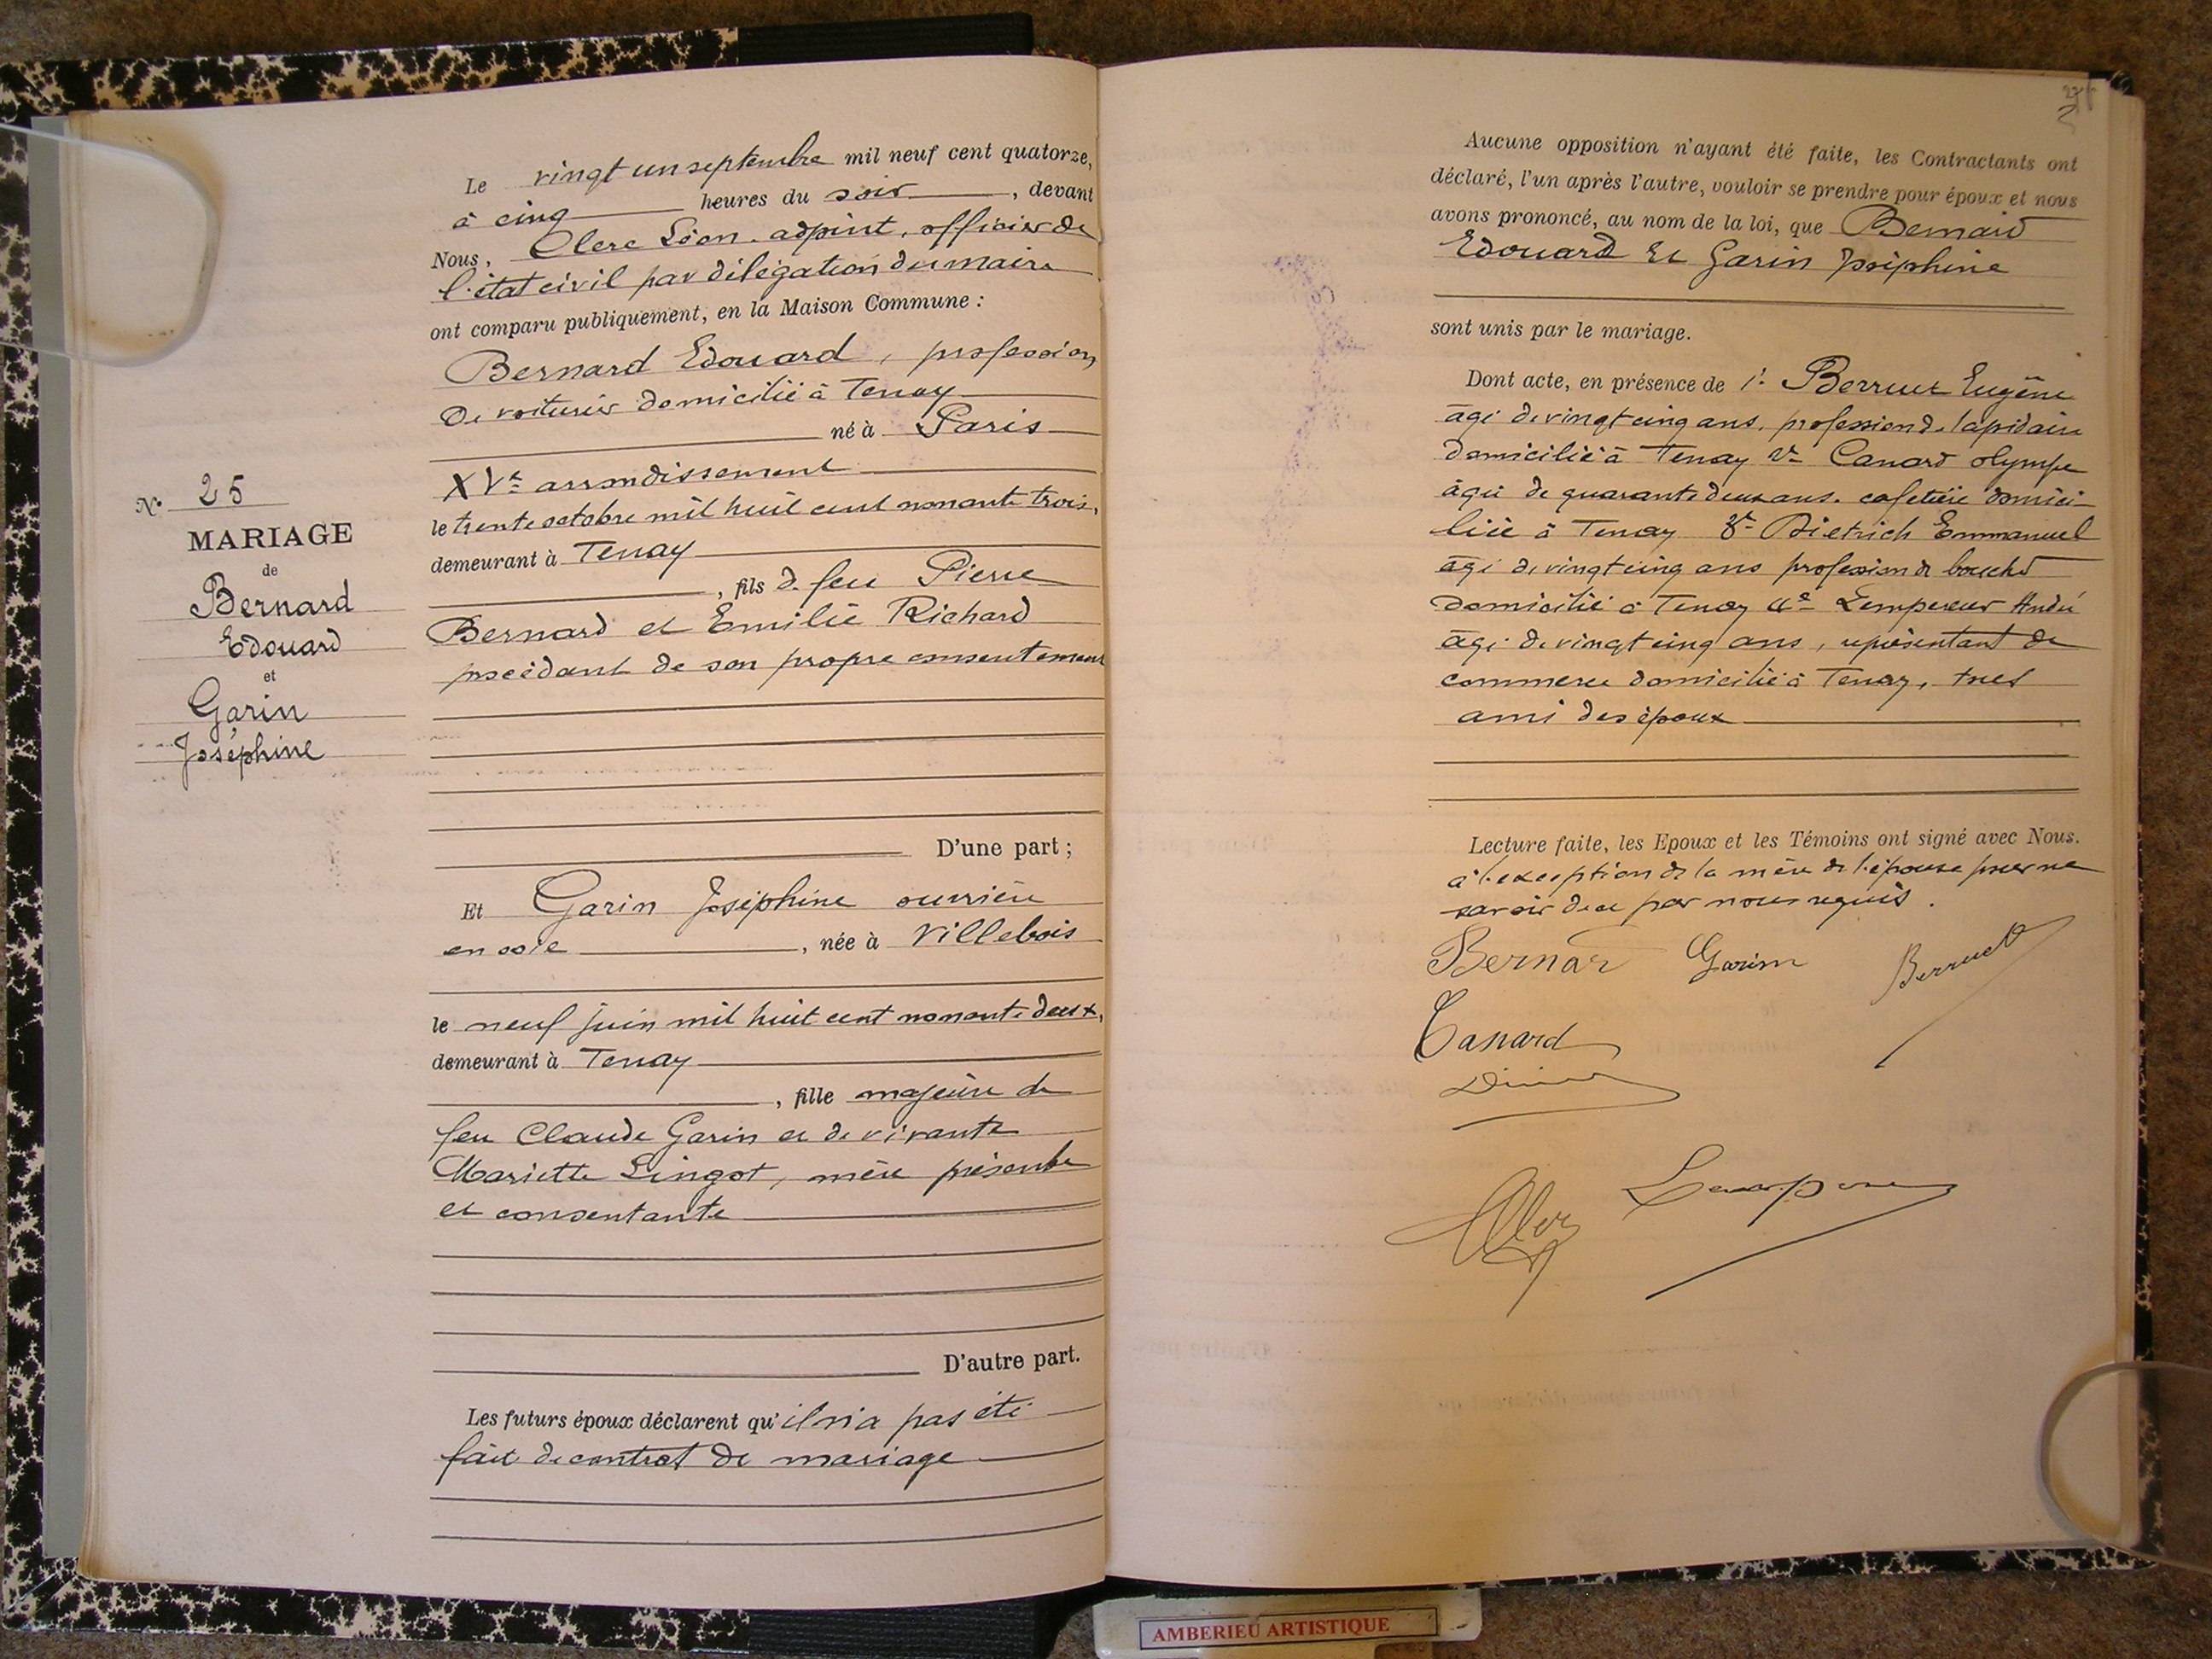 N° 25
MARIAGE
de
Bernard
Edouard
et
Garin
Joséphine
Le vingt un septembre mil neuf cent quatorze,
à cinq heures du soir, devant
Nous, Clerc Léon. adjoint, officier de
l'état civil par délégation du maire
ont comparu publiquement, en la Maison Commune :
Bernard Edouard, profession
de voiturier domicilié à Tenay
né à Paris
XVe arrondissement
le trente octobre mil huit cent nonante trois,
demeurant à Tenay
, fils de feu Pierre
Bernard et Emilie Richard
procédant de son propre consentement
D'une part ;
Et Garin Joséphine ouvrière
en soie, née à Villebois
le neuf juin mil huit cent nonante deux,
demeurant à Tenay
, fille majeure de
feu Claude Garin et de vivante
Mariette Lingot, mère présente
et consentante
D'autre part.
Les futurs époux déclarent qu'il n'a pas été
fait de contrat de mariage
Aucune opposition n'ayant été faite, les Contractants ont
déclaré, l'un après l'autre, vouloir se prendre pour époux et nous
avons prononcé, au nom de la loi, que Bernard
Edouard et Garin Joséphine
sont unis par le mariage.
Dont acte, en présence de 1° Berruet Eugène
âgé de vingt cinq ans, profession de lapidaire
domicilié à Tenay 2e Canard olympe
âgée de quarante deux ans. cafetière domici-
liée à Tenay 3e Dietrich Emmanuel
âgé de vingt cinq ans profession de boucher
domicilié à Tenay 4e Lempereur André
âgé de vingt cinq ans, représentant de
commerce domicilié à Tenay, tous
ami des époux
Lecture faite, les Epoux et les Témoins ont signé avec Nous.
à l'exception de la mère de l'épouse pour ne
savoir de ce par nous requis.
Bernar Garin Berruet
Canard
AMBERIEU ARTISTIQUE